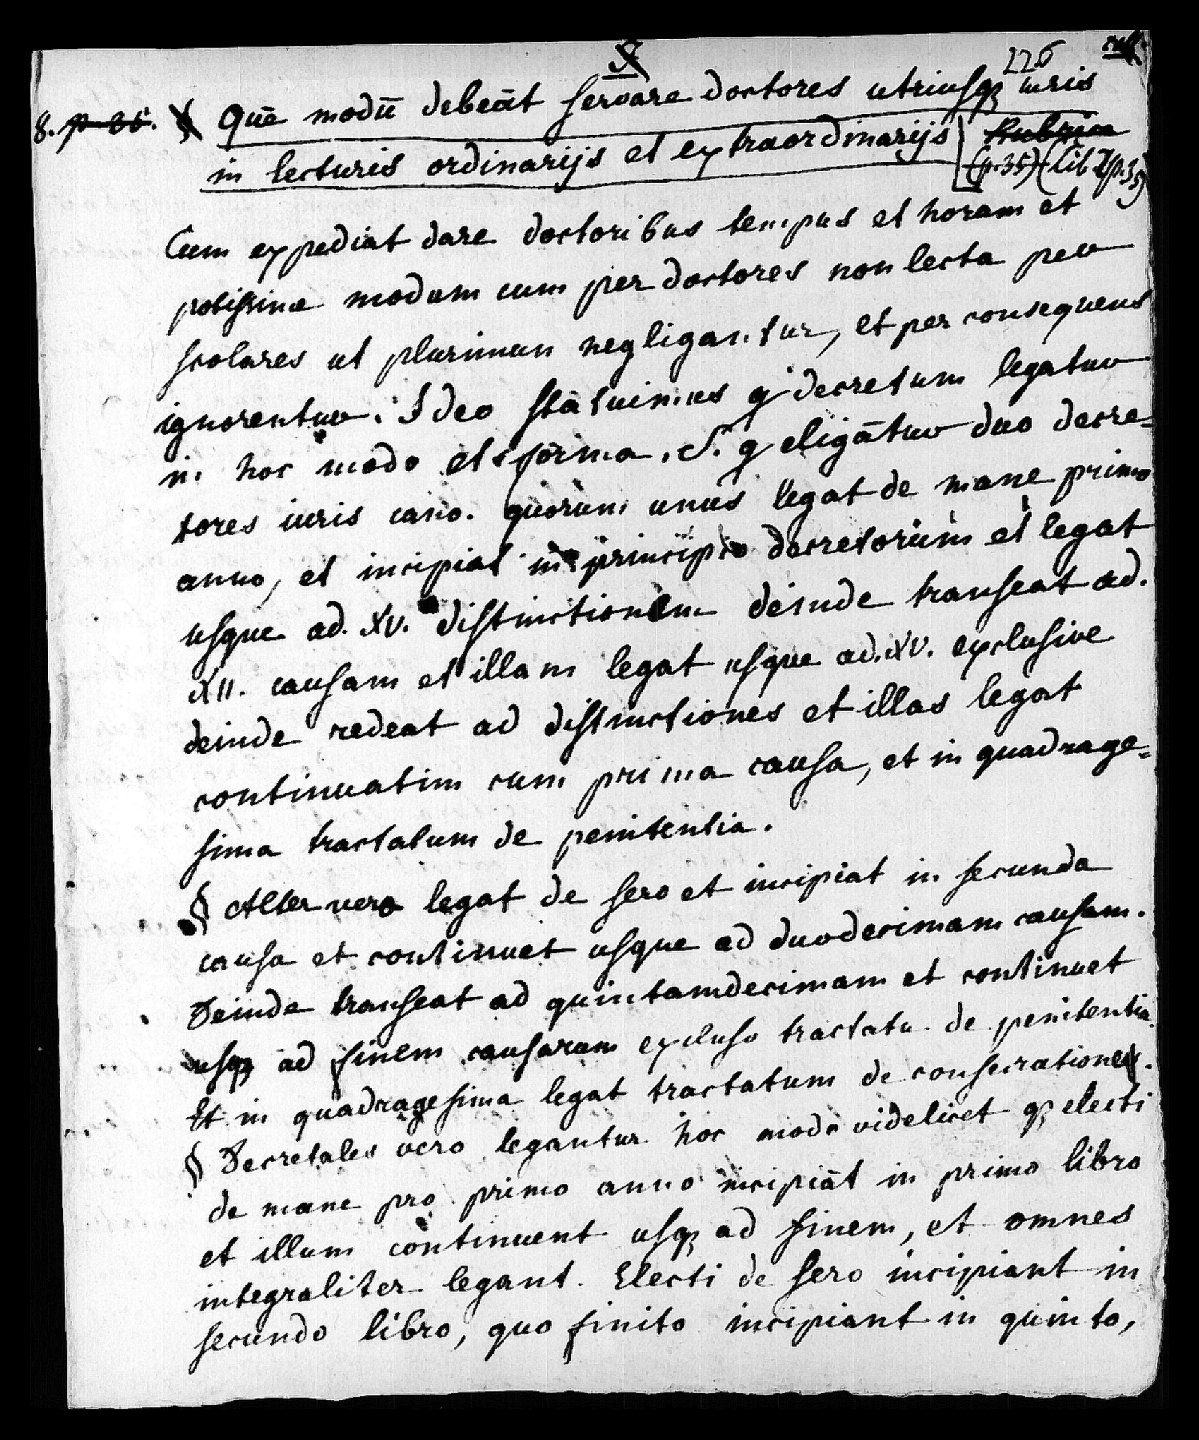 X
226
8. p 35. X Quē modū debeāt servare doctores utriusqꝫ iuris
in lecturis ordinarijs et extraordinarijs Rubrica
(p. 35) (Lib 2 p. 35)
Cum expediat dare doctoribus tempus et horam et
potissime modum cum per doctores non lecta per
scolares ut plurimum negligantur, et per consequens
ignorentur. Ideo statuimus q decretum legatur
in hoc modo et forma. S. q eligātur duo decre=
tores iuris cano. quorum unus legat de mane primo
anno, et incipiat in principio decretorum et legat
usque ad. XV. distinctionem deinde transeat ad.
XII. causam et illam legat usque ad. XV. exclusive
deinde redeat ad distinctiones et illas legat
continuatim cum prima causa, et in quadrage=
sima tractatum de penitentia.
§ Alter vero legat de sero et incipiat in secunda
causa et continuet usque ad duodecimam causam.
Deinde transeat ad quintamdecimam et continuet
usqꝫ ad finem causarum excluso tractatu de penitentia.
Et in quadragesima legat tractatum de consecratione.
§ Decretales vero legantur hoc modo videlicet qꝫ electi
de mane pro primo anno incipiāt in primo libro
et illum continuent usqꝫ ad finem, et omnes
integraliter legant. Electi de sero incipiant in
secundo libro, quo finito incipiant in quinto,